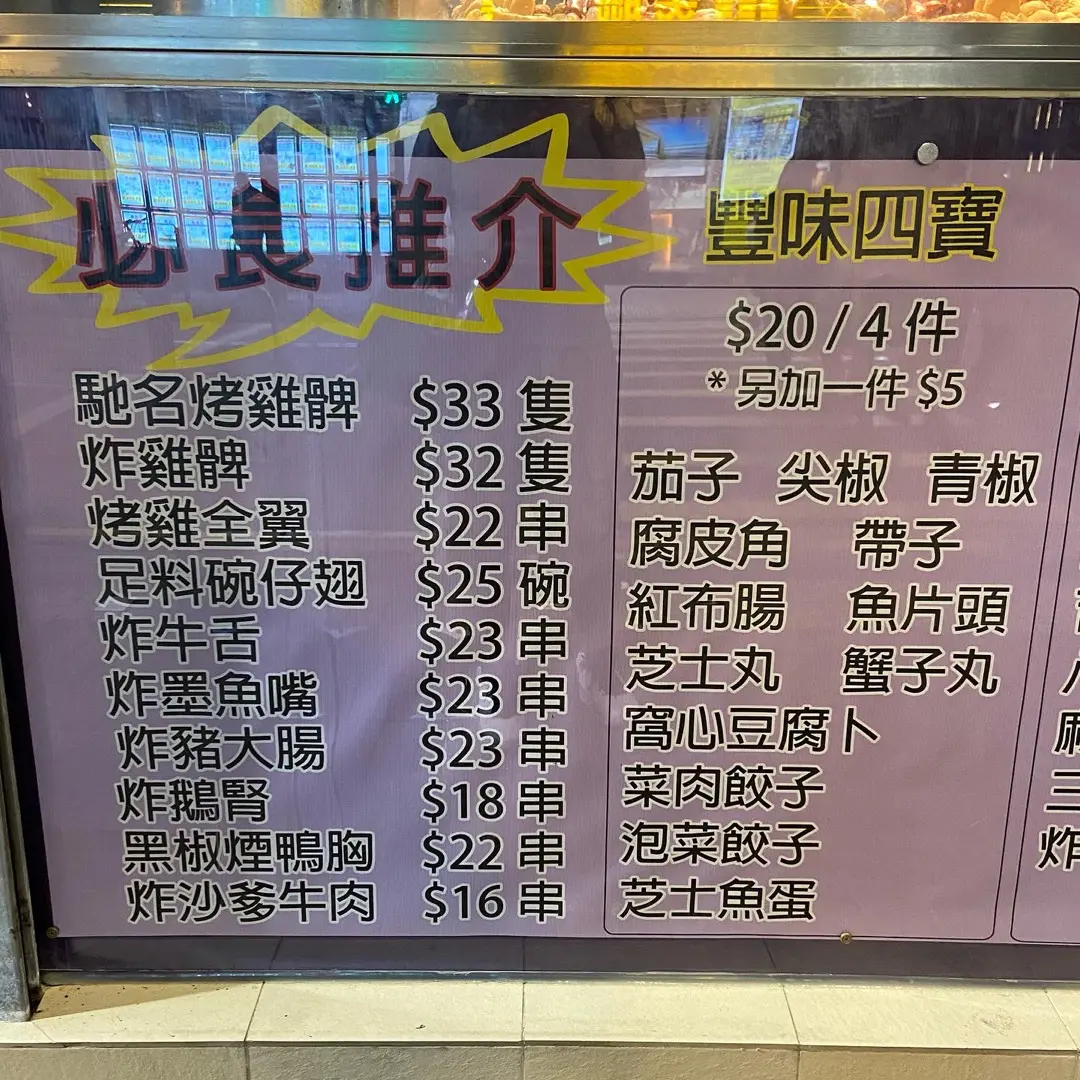 必食推介
馳名烤雞髀 $33 隻
炸雞髀 $32 隻
烤雞全翼 $22 串
足料碗仔翅 $25 碗
炸牛舌 $23 串
炸墨魚嘴 $23 串
炸豬大腸 $23 串
炸鵝腎 $18 串
黑椒煙鴨胸 $22 串
炸沙爹牛肉 $16 串
豐味四寶
$20 / 4 件
* 另加一件 $5
茄子 尖椒 青椒
腐皮角 帶子
紅布腸 魚片頭
芝士丸 蟹子丸
窩心豆腐卜
菜肉餃子
泡菜餃子
芝士魚蛋
三
炸